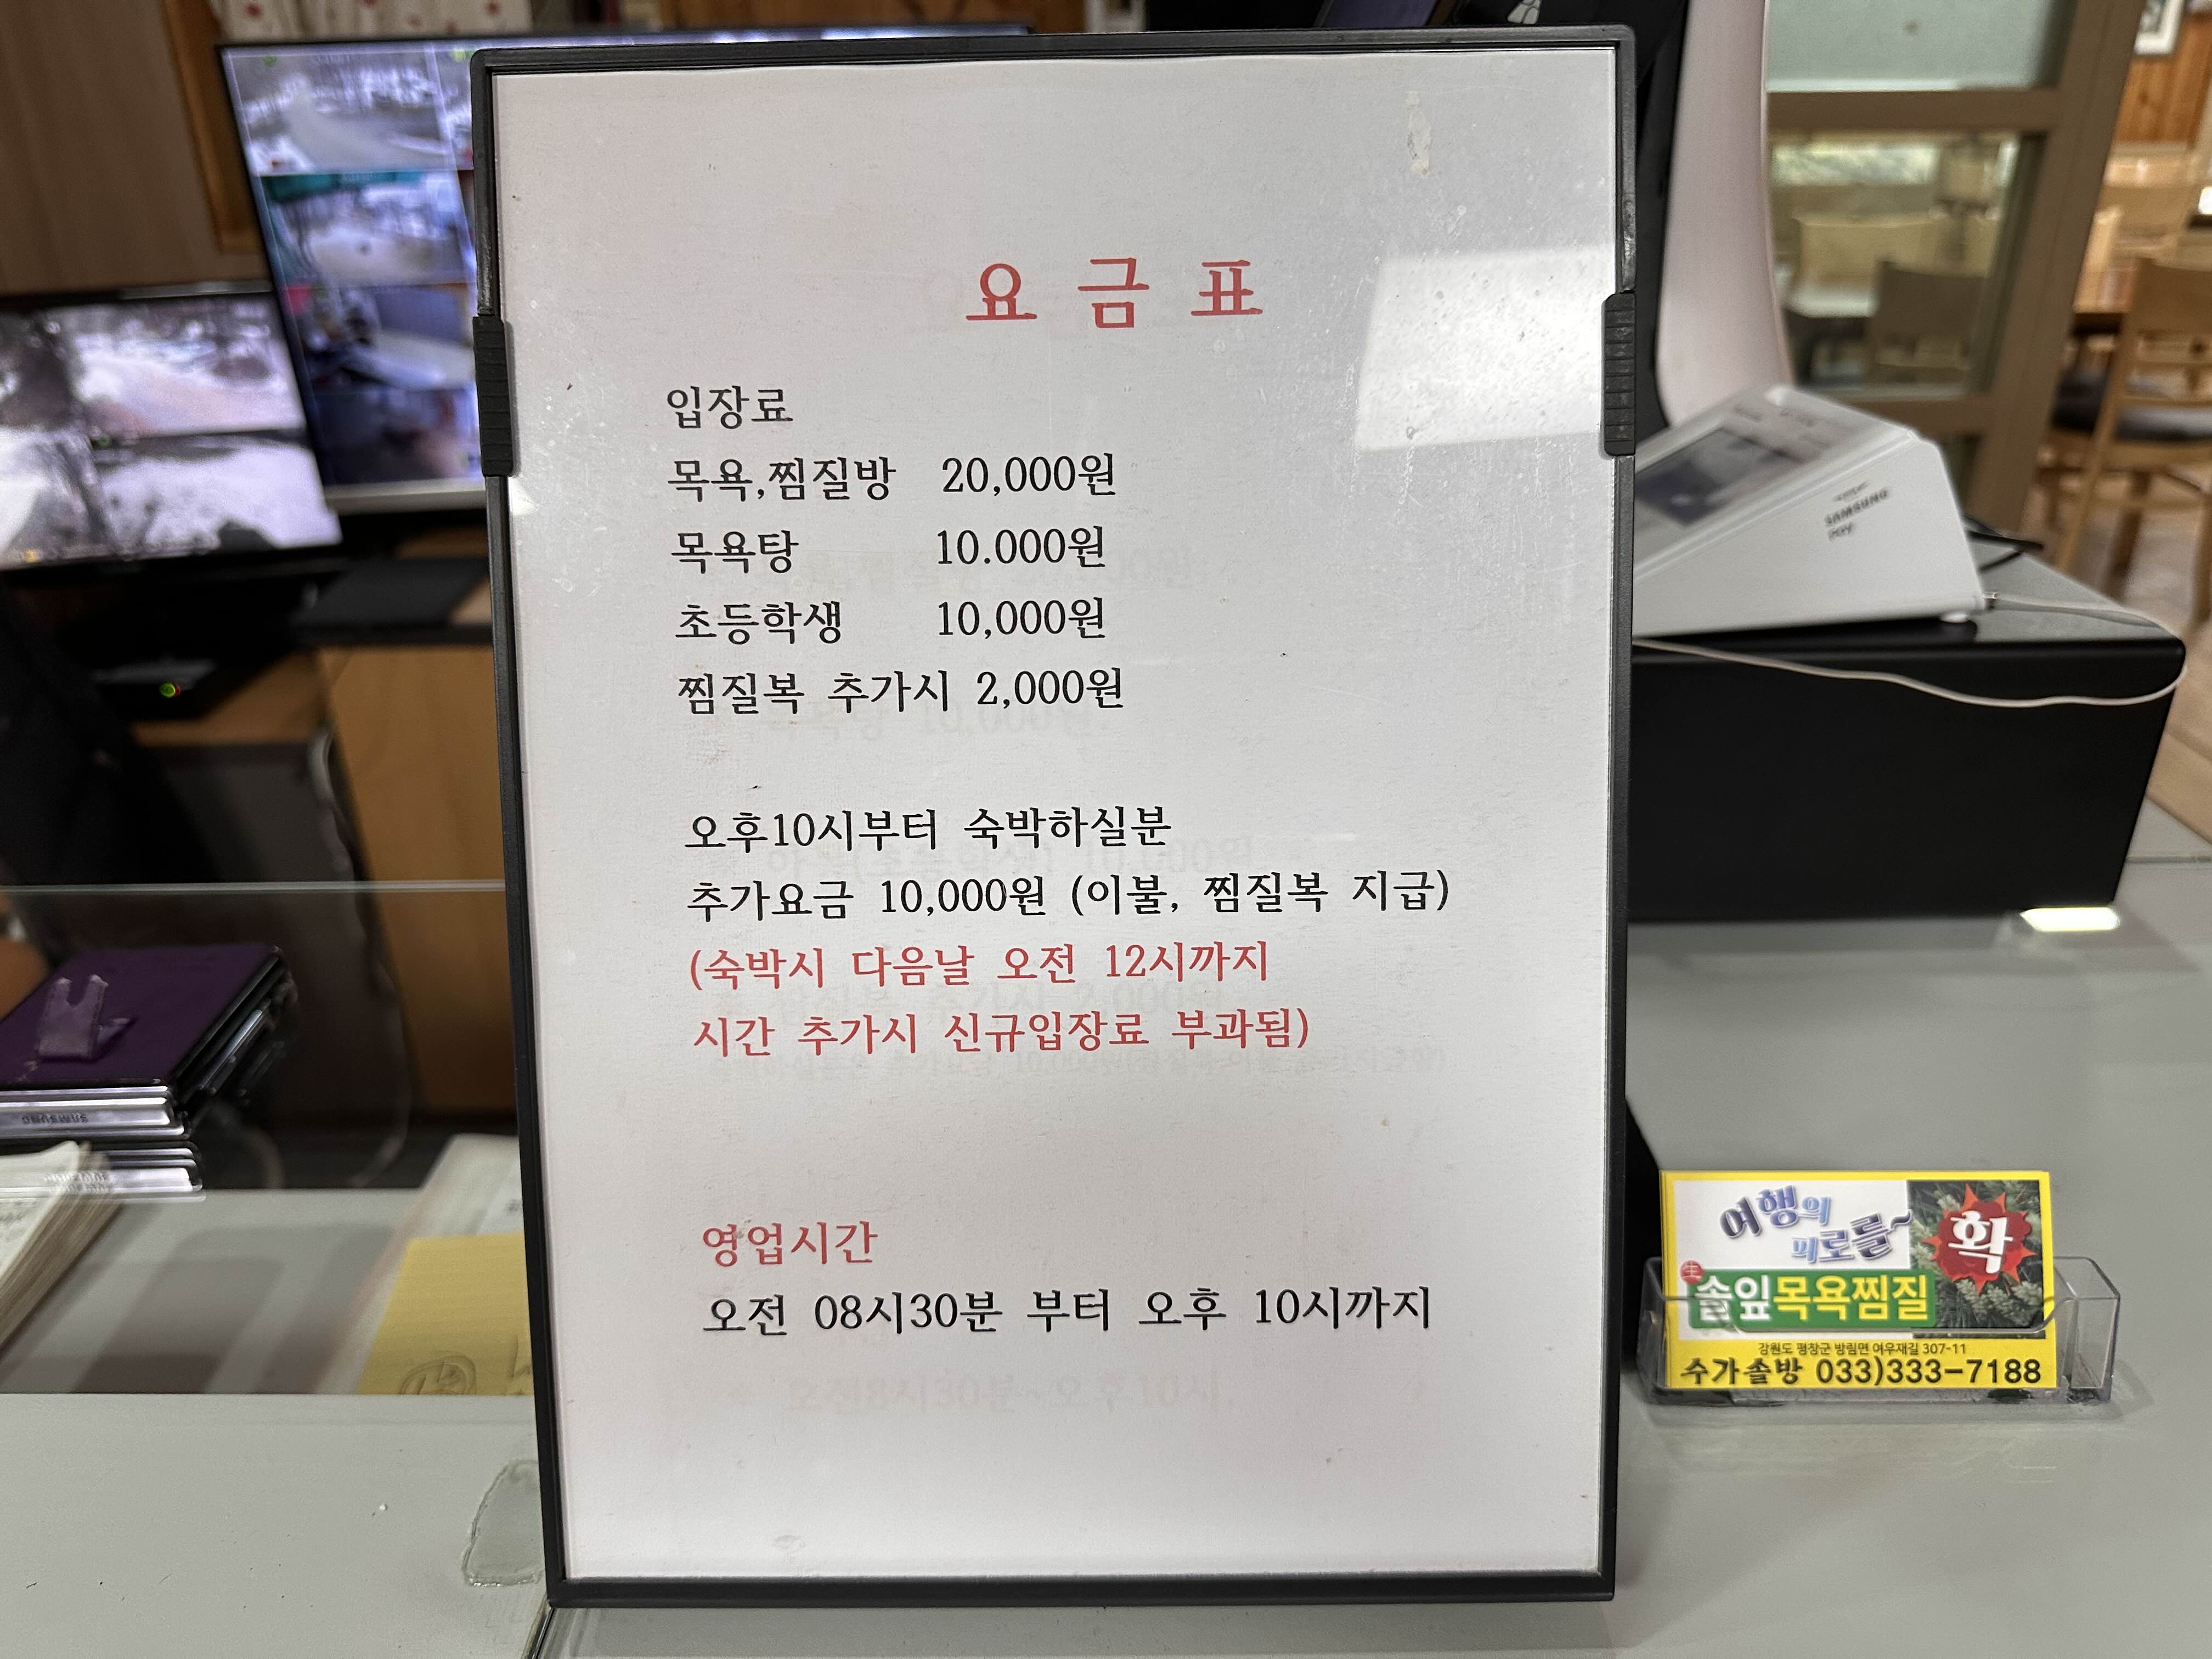 요 금 표
입장료
목욕,찜질방 20,000원
목욕탕 10.000원
초등학생 10,000원
찜질복 추가시 2,000원
오후10시부터 숙박하실분
추가요금 10,000원 (이불, 찜질복 지급)
(숙박시 다음날 오전 12시까지
시간 추가시 신규입장료 부과됨)
영업시간
오전 08시30분 부터 오후 10시까지
SAMSUNG
pay
SAMSUNG
여행의
피로를~
확
生
솔잎목욕찜질
강원도 평창군 방림면 여우재길 307-11
수가솔방 033)333-7188